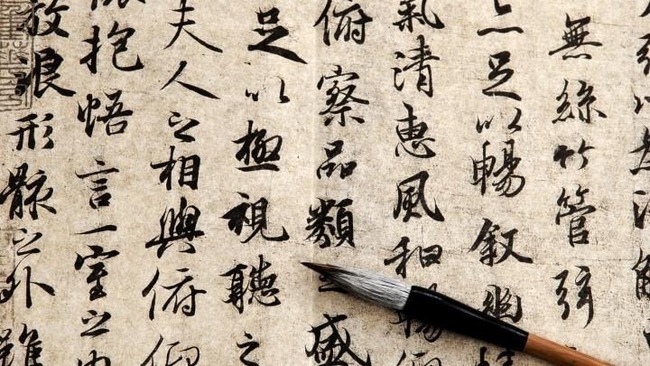 以為流觴
無絲竹管弦
亦足以暢敘幽情
氣清惠風和暢仰
俯察品類之盛
足以極視聽之
夫人之相與俯仰
懷抱悟言一室之內
放浪形骸之外雖